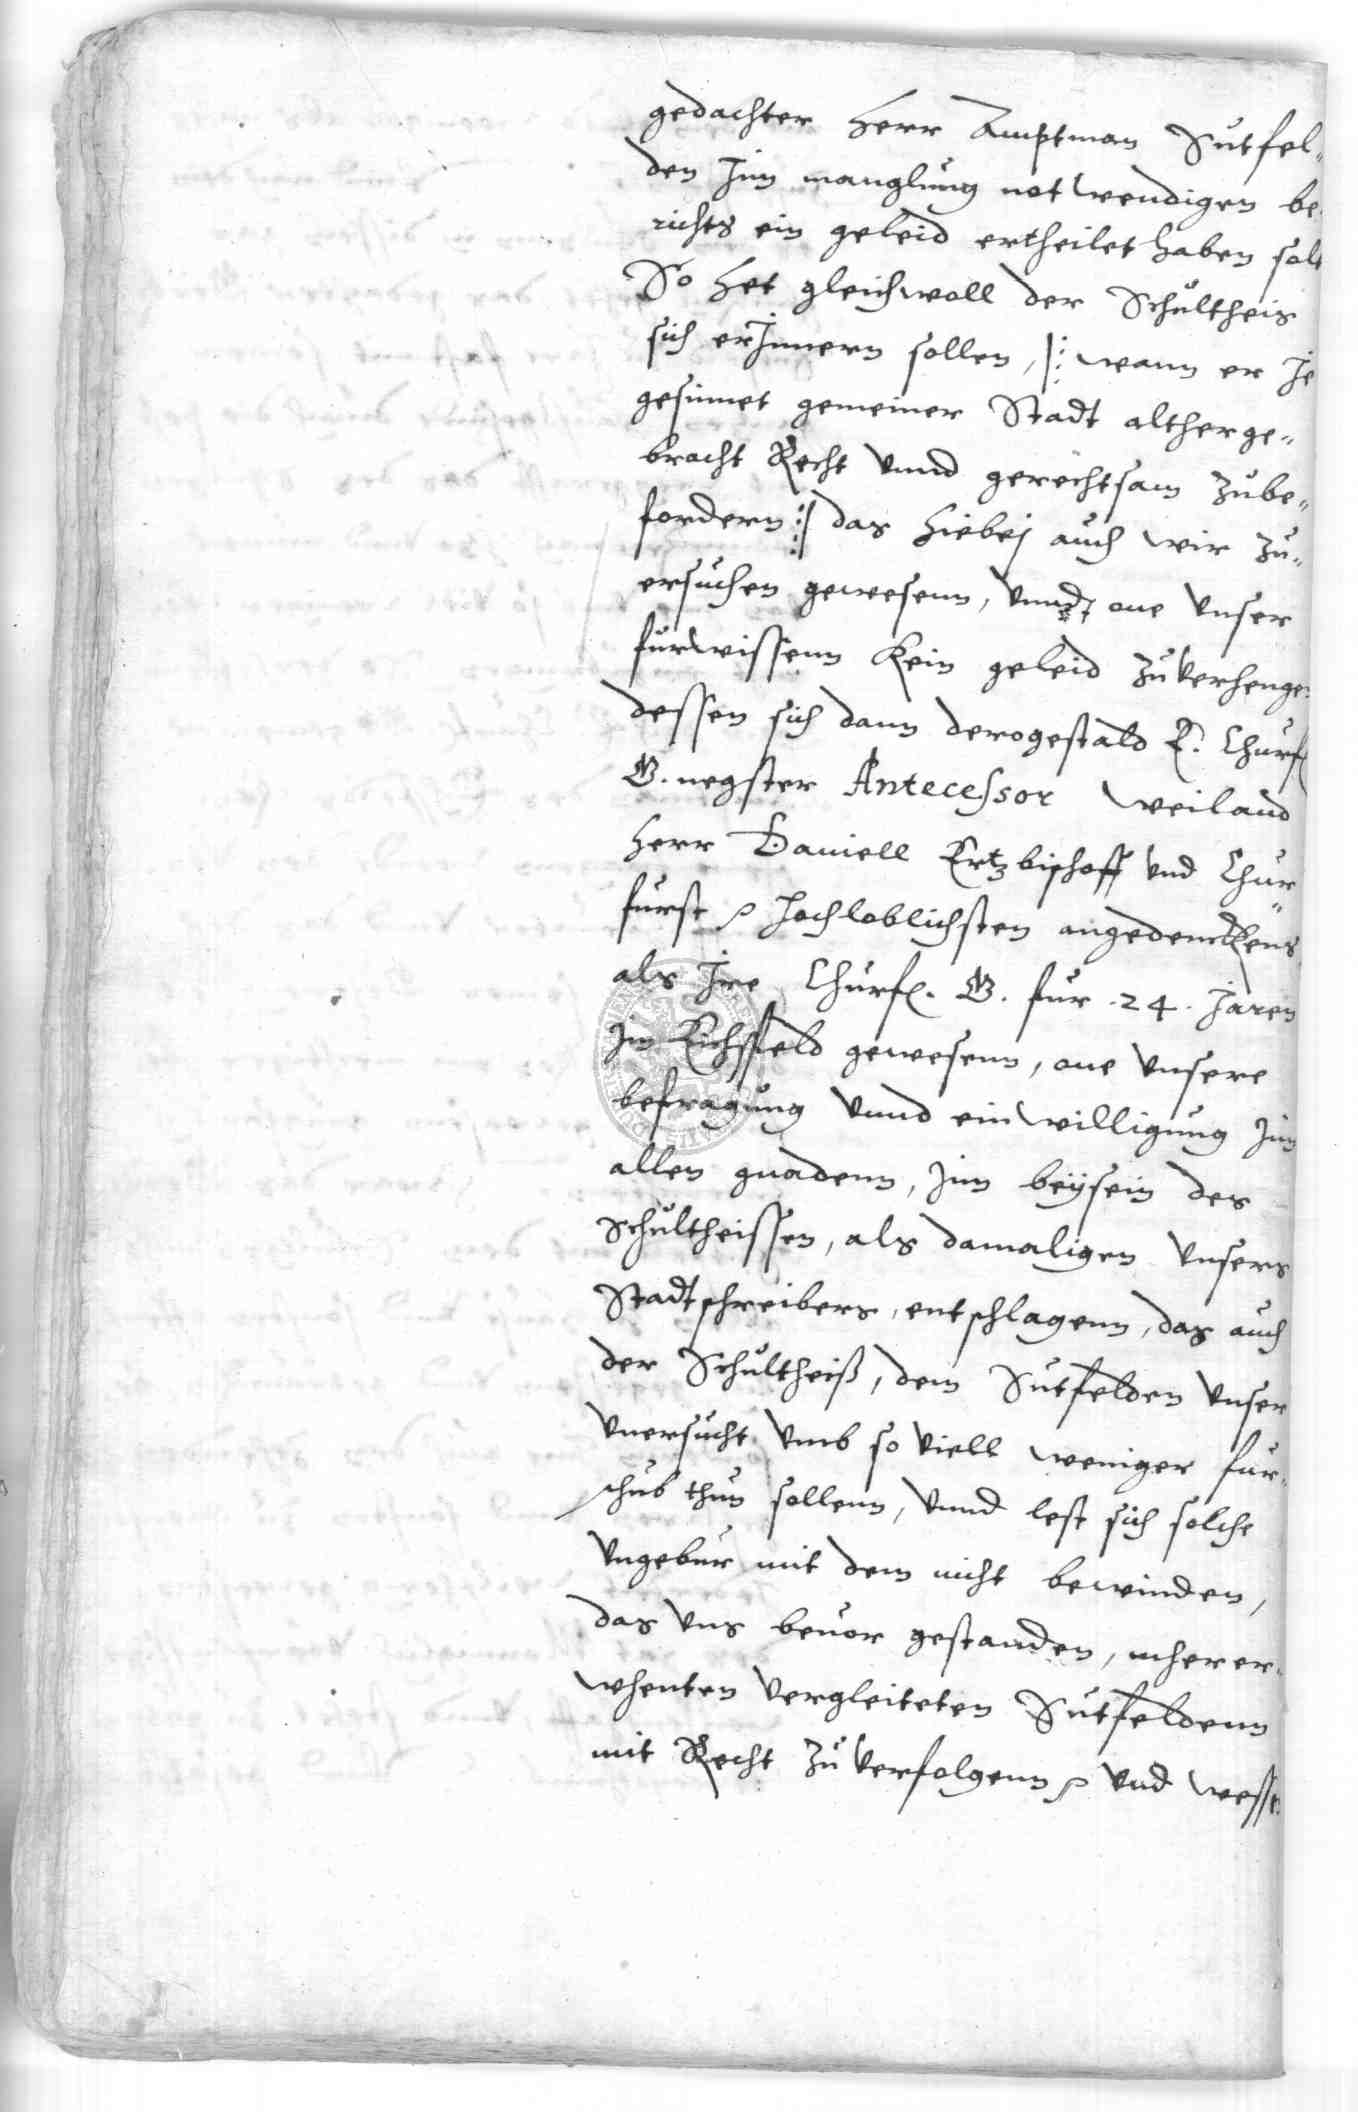 gedachter Herr Amptman Sutfel„
den Jnn manglung notwendigen be„
richts ein geleid ertheilet haben solt
So het gleichwoll der Schultheis
sich erJnnern sollen, |: wann er Je
gesinnet gemeiner Stadt altherge„
bracht Recht vnnd gerechtsam zube„
fordern :| das hiebej auch wir zu„
ersuchen gewesenn, vnndt one vnser
furwissenn kein geleid zuverhenge
dessen sich dann derogestald E. Churf.
G. negster Antecessor weiland
Herr Daniell Ertzbischoff vnd Chur„
furst hochloblichsten angedenckens
als Jre Churf. G. fur .24. Jaren
Jm Eichsfeld gewesenn, one vnsere
befragung vnnd einwilligung Jnn
allen gnadenn, Jnn beÿsein des
Schultheissen, als damaligen vnsers
Stadtschreibers, entschlagenn, das auch
der Schultheiß, dem Sutfelden vnser
vnersucht vmb so viell weniger fur„
schub thun sollenn, vnnd lest sich solche
vngebur mit dem nicht bewinden,
das vns beuor gestanden, mherer„
whenten vergleiteten Sutfeldenn
mit Recht zuverfolgenn vnd wesse